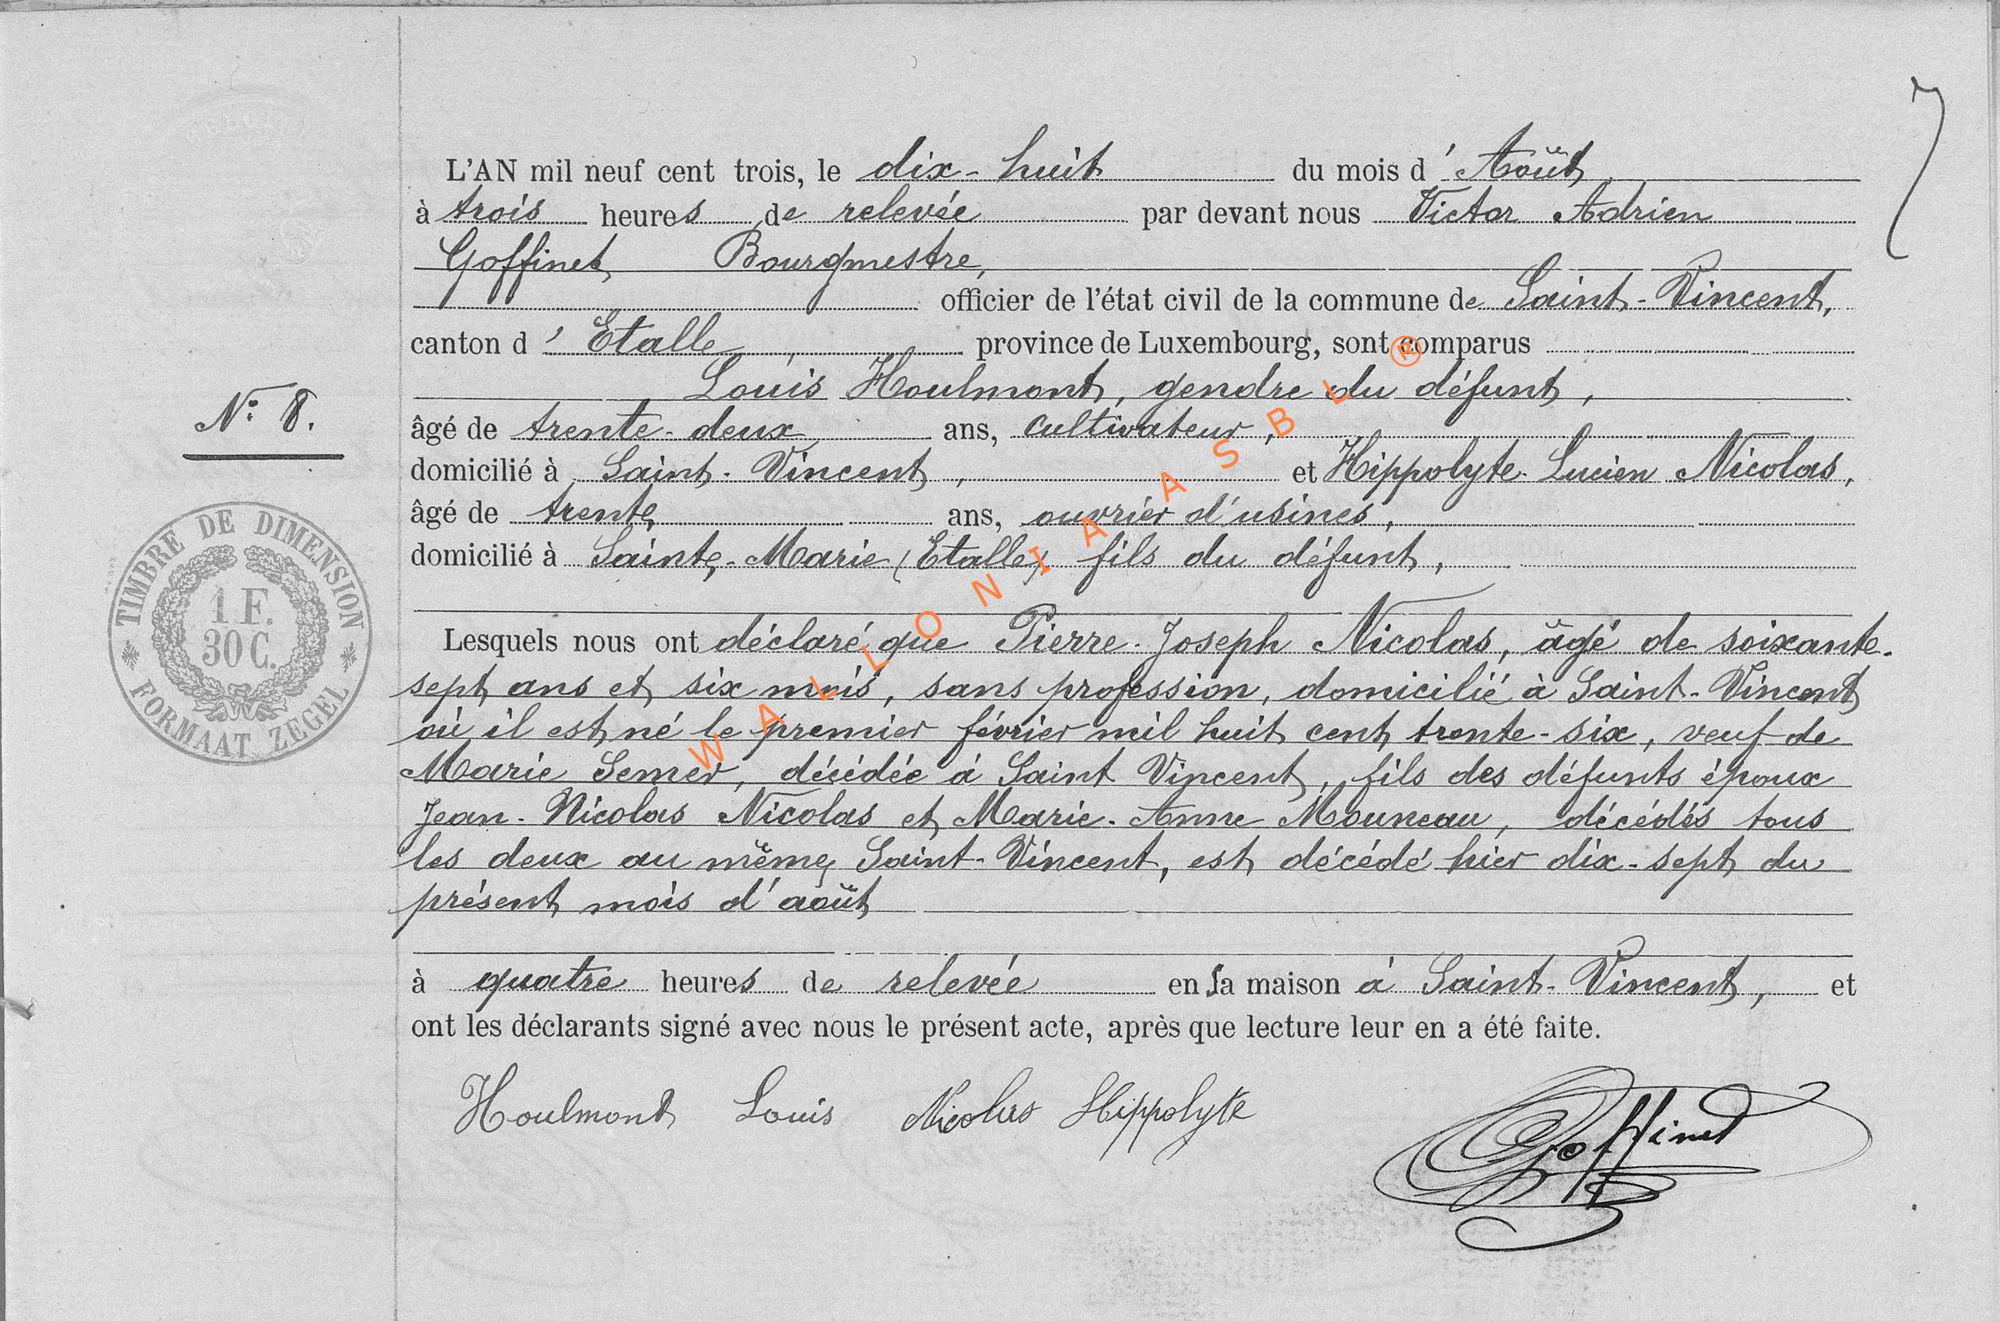 7
L'AN mil neuf cent trois, le dix-huit du mois d' Août,
à trois heures de relevée par devant nous Victor Adrien
Goffinet Bourgmestre,
officier de l'état civil de la commune de Saint-Vincent,
canton d' Etalle, province de Luxembourg, sont comparus
Louis Houlmont, gendre du défunt,
N° 8.
âgé de trente-deux ans, cultivateur,
domicilié à Saint-Vincent, et Hippolyte-Lucien Nicolas,
âgé de trente ans, ouvrier d'usines,
domicilié à Sainte-Marie (Etalle) fils du défunt,
TIMBRE DE DIMENSION
1 F.
30 C.
FORMAAT ZEGEL
Lesquels nous ont déclaré que Pierre-Joseph Nicolas, âgé de soixante-
sept ans et six mois, sans profession, domicilié à Saint-Vincent
où il est né le premier février mil huit cent trente-six, veuf de
Marie Semer, décédée à Saint Vincent, fils des défunts époux
Jean-Nicolas Nicolas et Marie-Anne Mouneau, décédés tous
les deux au même Saint-Vincent, est décédé hier dix-sept du
présent mois d'août
à quatre heures de relevée en sa maison à Saint-Vincent, et
ont les déclarants signé avec nous le présent acte, après que lecture leur en a été faite.
Houlmont Louis Nicolas Hippolyte Goffinet
WALLONIA ASBL ®